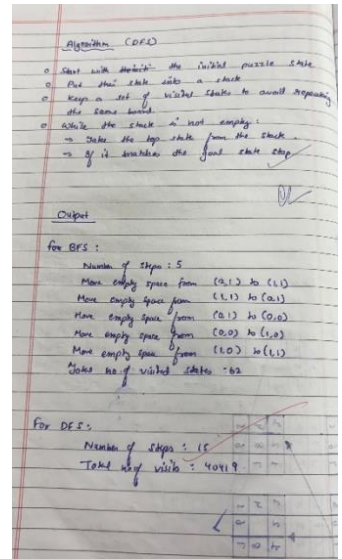 Algorithm (DFS)
o Start with the initial puzzle state
o Put this state into a stack
o Keep a set of visited states to avoid repeating
the same board
o While the stack is not empty:
→ Take the top state from the stack.
→ If it matches the goal state stop
Output
for BFS :
Number of steps : 5
Move empty space from (0,1) to (1,1)
Move empty space from (1,1) to (0,1)
Move empty space from (0,1) to (0,0)
Move empty space from (0,0) to (1,0)
Move empty space from (1,0) to (1,1)
Total no. of visited states - 62
For DFS :
Number of steps : 15
Total no. of visits : 40419